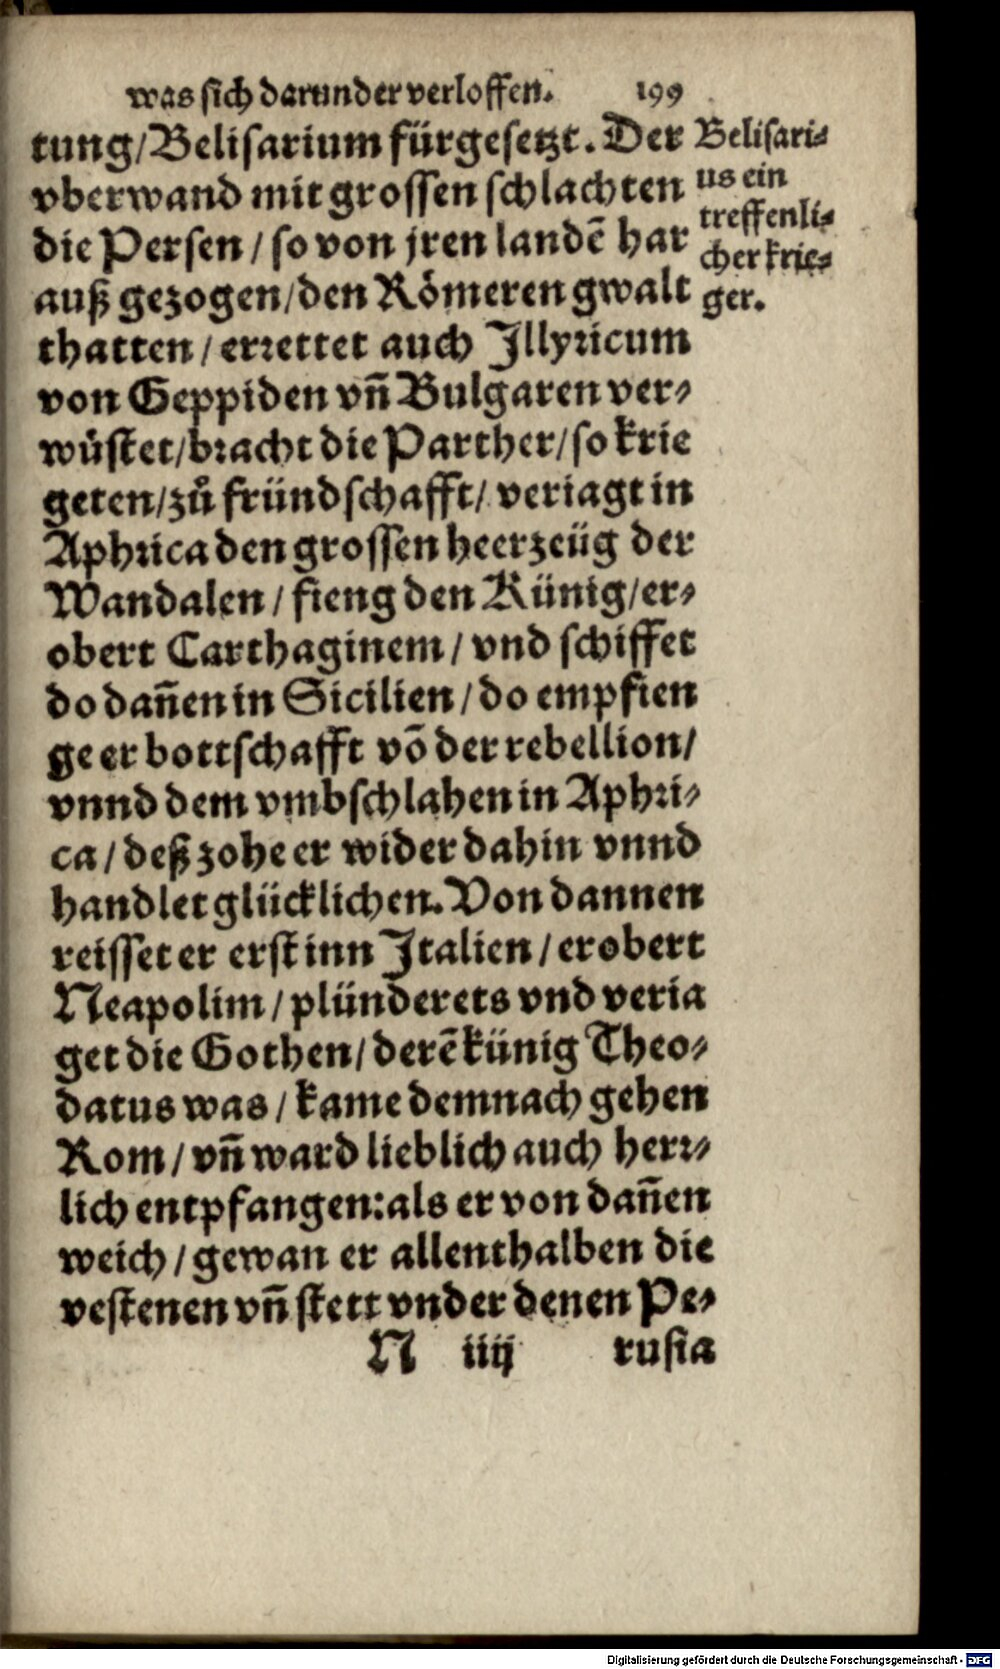 was sich darunder verloffen. 199
tung/Belisarium fürgesetzt. Der
vberwand mit grossen schlachten
die Persen/so von jren landē har
auß gezogen/den Römeren gwalt
thatten/errettet auch Illyricum
von Geppiden vn̄ Bulgaren ver⸗
wüstet/bracht die Parther/so krie
geten/zů fründschafft/ veriagt in
Aphrica den grossen heerzeüg der
Wandalen/fieng den Künig/er⸗
obert Carthaginem/vnd schiffet
do dan̄en in Sicilien/do empfien
ge er bottschafft vō der rebellion/
vnnd dem vmbschlahen in Aphri⸗
ca/deß zohe er wider dahin vnnd
handlet glücklichen. Von dannen
reisset er erst inn Italien/erobert
Neapolim/plünderets vnd veria
get die Gothen/derē künig Theo⸗
datus was/kame demnach gehen
Rom/vn̄ ward lieblich auch herr⸗
lich entpfangen:als er von dan̄en
weich/gewan er allenthalben die
vestenen vn̄ stett vnder denen Pe⸗
N iiij rusia
Belisari⸗
us ein
treffenli⸗
cher krie⸗
ger.
Digitalisierung gefördert durch die Deutsche Forschungsgemeinschaft - DFG